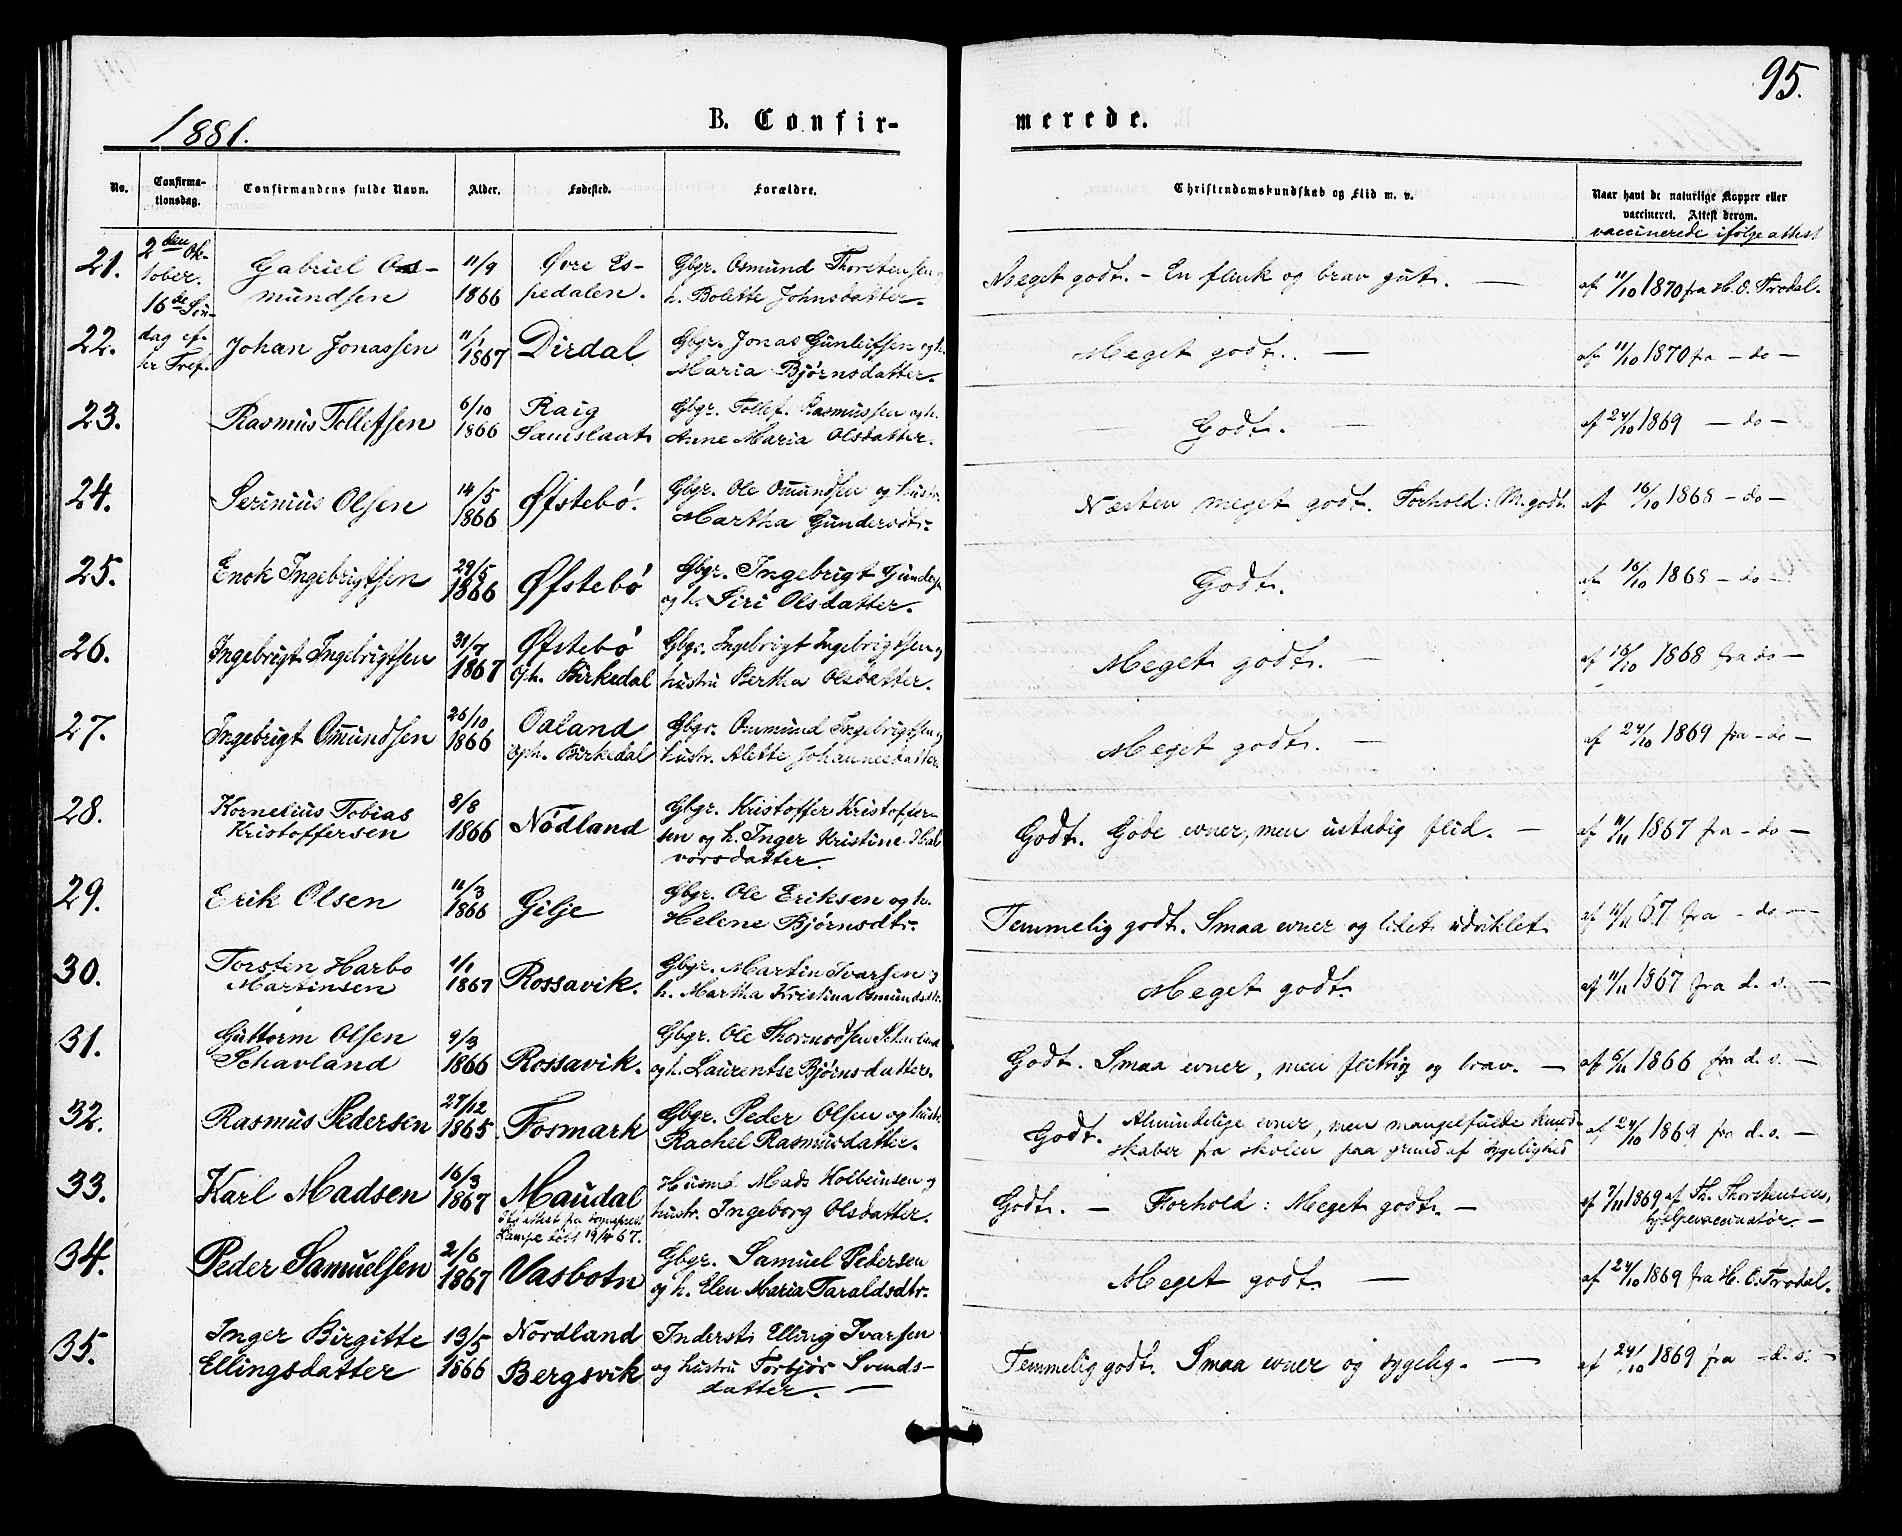 95.
1881.
B. Confir-
merede.
No.
Confirma-
tionsdag.
Confirmandens fulde Navn.
Alder.
Fødested.
Forældre.
Christendomskundskab og Flid m. v.
Naar havt de naturlige Kopper eller
vaccineret. Attest derom.
vaccinerede ifølge attest
2den Ok-
tober.
16de Søn-
dag ef-
ter Tref.
21. Gabriel Os-
mundsen
11/9
1866
Øvre Es-
pedalen.
Gbgr. Osmund Thorstensen og
h. Bolette Johnsdatter.
Meget godt. - En flink og brav gut. —
af 11/10 1870 fra H. O. Frodal.
22. Johan Jonassen
11/1
1867
Dirdal
Gbgr. Jonas Gunleifsen og h.
Maria Bjørnsdatter.
Meget godt. —
af 11/10 1870 fra - do -
23. Rasmus Tollefsen
6/10
1866
Raig
Gbgr. Tollef Rasmussen og h.
Anne Maria Olsdatter.
Godt. —
af 24/10 1869 - do -
24. Serinius Olsen
14/5
1866
Øfstebø.
Gbgr. Ole Omundsen og hustr.
Martha Gundersdtr.
Næsten meget godt. Forhold: M. godt.
af 16/10 1868 - do -
25. Enok Ingebrigtsen
29/5
1866
Øfstebø
Gbgr. Ingebrigt Gunders.
og h. Siri Olsdatter.
Godt.
af 16/10 1868 - do -
26. Ingebrigt Ingebrigtsen
31/7
1867
Øfstebø
oph. Birkedal
Gbgr. Ingebrigt Ingebrigtsen og
hustru Bertha Olsdatter.
Meget godt. —
af 16/10 1868 fra do -
27. Ingebrigt Omundsen
26/10
1866
Oaland
oph. Birkedal
Gbgr. Ommund Ingebrigtsen og
hustr. Alette Johannesdatter.
Meget godt. —
af 24/10 1869 fra - do -
28. Kornelius Tobias
Kristoffersen
8/8
1866
Nødland
Gbgr. Kristoffer Kristoffer-
sen og h. Inger Kristine Hal
vorsdatter.
Godt. Gode evner, men ustadig flid. —
af 11/11 1867 fra - do -
29. Erik Olsen
1866
Gilje
Gbgr. Ole Eriksen og h.
Helene Bjørnsdtr.
Temmelig godt. Smaa evner og lidet udviklet.
af 11/11 67 fra - do -
30. Torsten Harbo
Martinsen
1/1
1867
Rossavik.
Gbgr. Martin Ivarsen og
h. Martha Kristina Osmundsdtr.
Meget godt.
af 11/11 1867 fra d. s. -
31. Guttorm Olsen
Schavland
9/3
1866
Rossavik.
Gbgr. Ole Thormodsen
og h. Laurentse Bjørnsdatter.
Godt. Smaa evner, men flittig og brav. —
af 6/11 1866 fra d. s. -
32. Rasmus Pedersen
27/12
1865
Fosmark
Gbgr. Peder Olsen og hustr.
Rachel Rasmusdatter.
Godt. Almindelige evner, men mangelfulde kund-
skaber fra skolen paa grund af sygelighed
af 24/10 1869 fra d. s. -
33. Karl Madsen
16/3
1867
Maudal
Ifg attest fra sogneprest
Lampe døbt 19/4 67.
Husmd Mads Kolbeinsen og
hustr. Ingeborg Olsdatter.
Godt. - Forhold: Meget godt. -
af 7/11 1869 af Th. Thorstensen,
hjelpevaccinatør. -
34. Peder Samuelsen
2/6
1867
Vasbotn
Gbgr. Samuel Pedersen
og h. Elen Maria Taraldsdtr.
Meget godt. —
af 24/10 1869 fra H. O. Frodal.
35. Inger Birgitte
Ellingsdatter
13/5
1866
Nordland
Bergsvik
Inderst Elling Ivarsen
og hustru Torbjør Svends-
datter. —
Temmelig godt. Smaa evner og sygelig. —
af 24/10 1869 fra - d. s. -